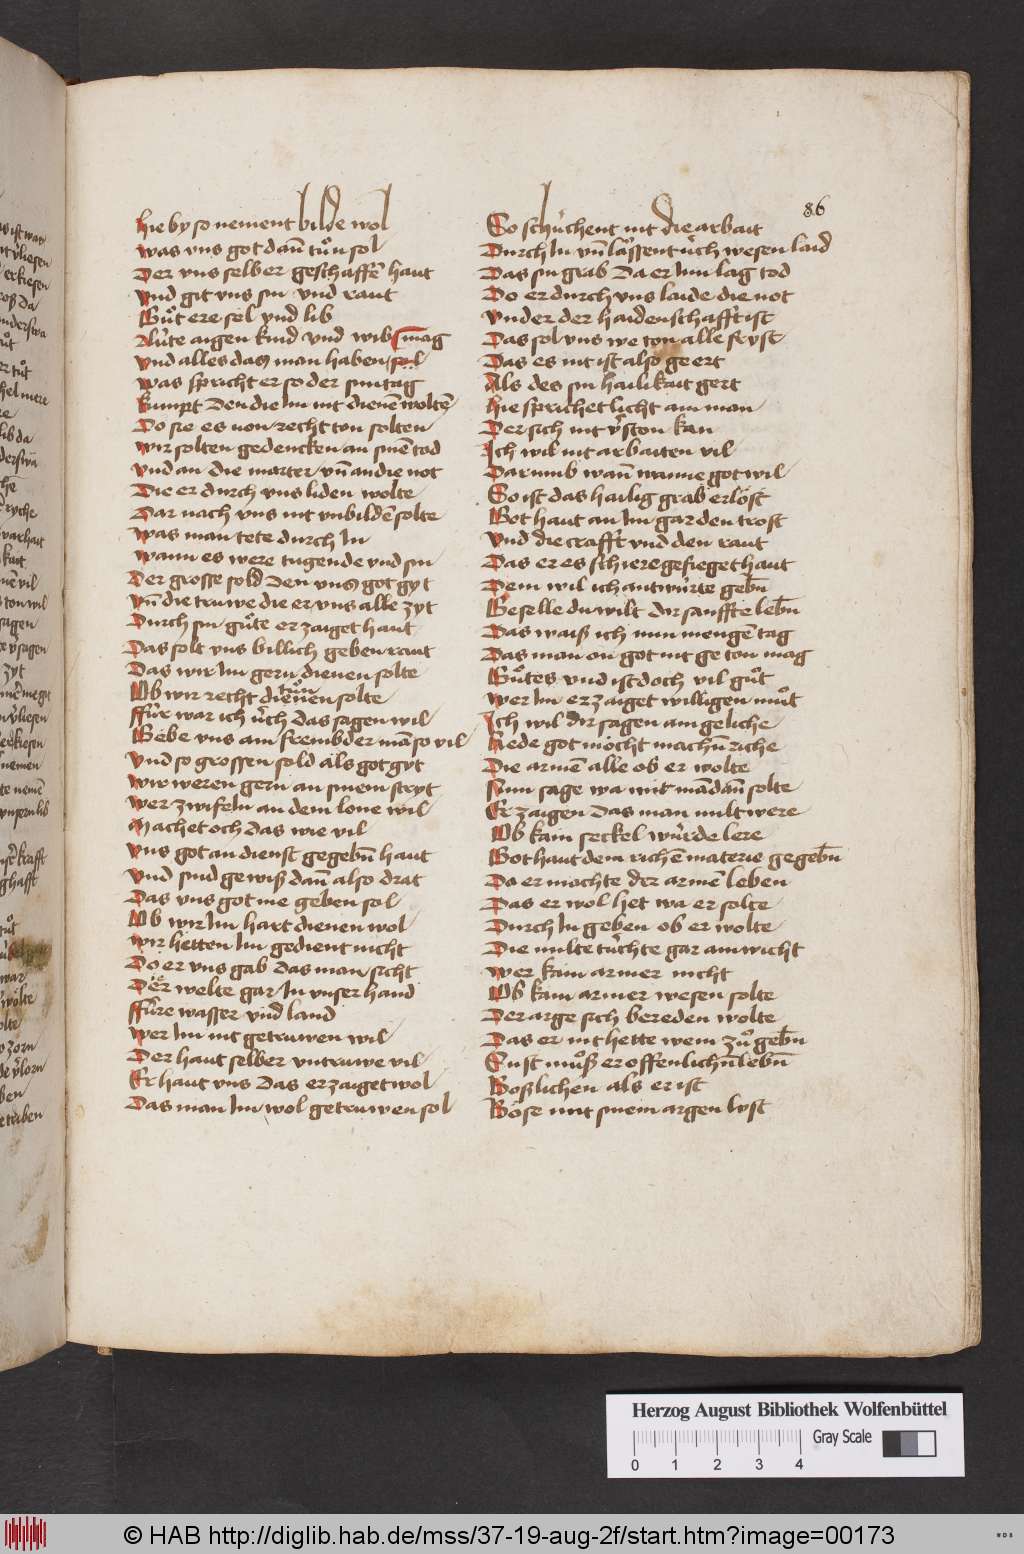 86
Hie by so nement bilde wol
Was vns got dañ tuͦn sol
Der vns selber geschaffē haut
Vnd git vns sin vnd raut
Guͦt ere sel vnd lib
Luͤte aigen kind vnd wib
Vnd alles das man haben sol mag
Was spricht er so der sun tag
kumpt Den die Im nit dienē woltē
Do sie es von recht ton solten
Wir solten gedencken an sinē tod
Vnd an die marter vñ an die not
Die er durch vns liden wolte
Dar nach vns nit vnbildē solte
Was man tete durch In
Wann es were tugende vnd sin
Der grosse sold Den vns got gyt
Vñ die truwe die er vns alle zyt
Durch sin guͤte erzaiget haut
Das solt vns billich geben raut
Das wir Im gern dienen solte
Ob wir recht dienen tuͦn solte
Ffuͤr war ich uͤch das sagen wil
Gebe vns ain frembder mā so vil
Vnd so grossen sold als got gyt
Wir weren gern an sinem stryt
Wer zwifeln an dem lone wil
Machet och das wie vil
Vns got an dienst gegebn̄ haut
Vnd sind gewiß dañ also drat
Das vns got me geben sol
Ob wir Im hart dienen wol
Wir hetten Im gedient nicht
Do er vns gab das man sicht
Der welte gar In vnser hand
Ffuͤre wasser vnd land
Wer Im nit getruwen wil
Der haut selber vntruwe vil
Er haut vns das erzaiget wol
Das man Im wol getruwen sol
So schuͤchent nit die arbait
Durch In vñ laͮssent uͤch wesen laid
Das sin grab Da er Inn lag tod
Do er durch vns laide die not
Vnder der haidenschafft ist
Das sol vns we ton alle fryst
Das es nit ist also geert
Als des sin hailikait gert
Hie sprichet licht ain man
Der sich nit v̾ston kan
Ich wil nit arbaiten vil
Darumb wañ wanne got wil
So ist das hailig grab erloͤst
Got haut an Im gar den trost
Vnd die crafft vnd den raut
Das er es schiere gesieget haut
Dem wil ich antwuͤrte gebn̄
Geselle du wilt dir sanffte lebn̄
Das waiß ich nun mengē tag
Das man on got nit geton mag
Guͦtes vnd ist doch vil guͦt
Wer Im erzaiget willigen muͦt
Ich wil dir sagen ain geliche
Rede got moͤcht machn̄ riche
Die armē alle ob er wolte
Nun sage wa mit mā dañ solte
Erzaigen Das man milt were
Ob kain seckel wuͤrde lere
Got haut dem richē materie gegebn̄
Do er machte der armē leben
Das er wol het wa er solte
Durch In geben ob er wolte
Die milte tuͤchte gar ain wicht
Wer kain armer nicht
Ob kain armer wesen solte
Der arge sich bereden wolte
Das er nit hette wem zuͦ gebn̄
Sust muͦß er offenlichn̄ lebn̄
Boßlichen als er ist
Boͤse mit sinem argen lyst
Herzog August Bibliothek Wolfenbüttel
Gray Scale
0 1 2 3 4
© HAB http://diglib.hab.de/mss/37-19-aug-2f/start.htm?image=00173